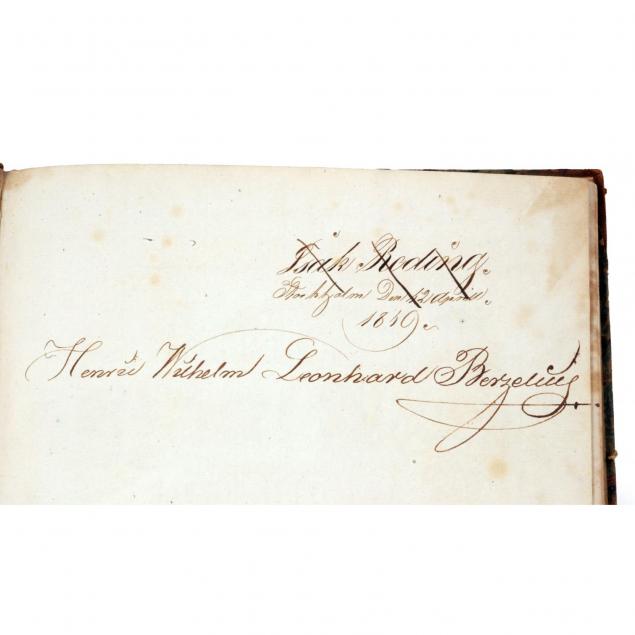 Isak Reding.
Stockholm Den 12 April.
1840.
Henrik Wilhelm Leonhard Berzelius